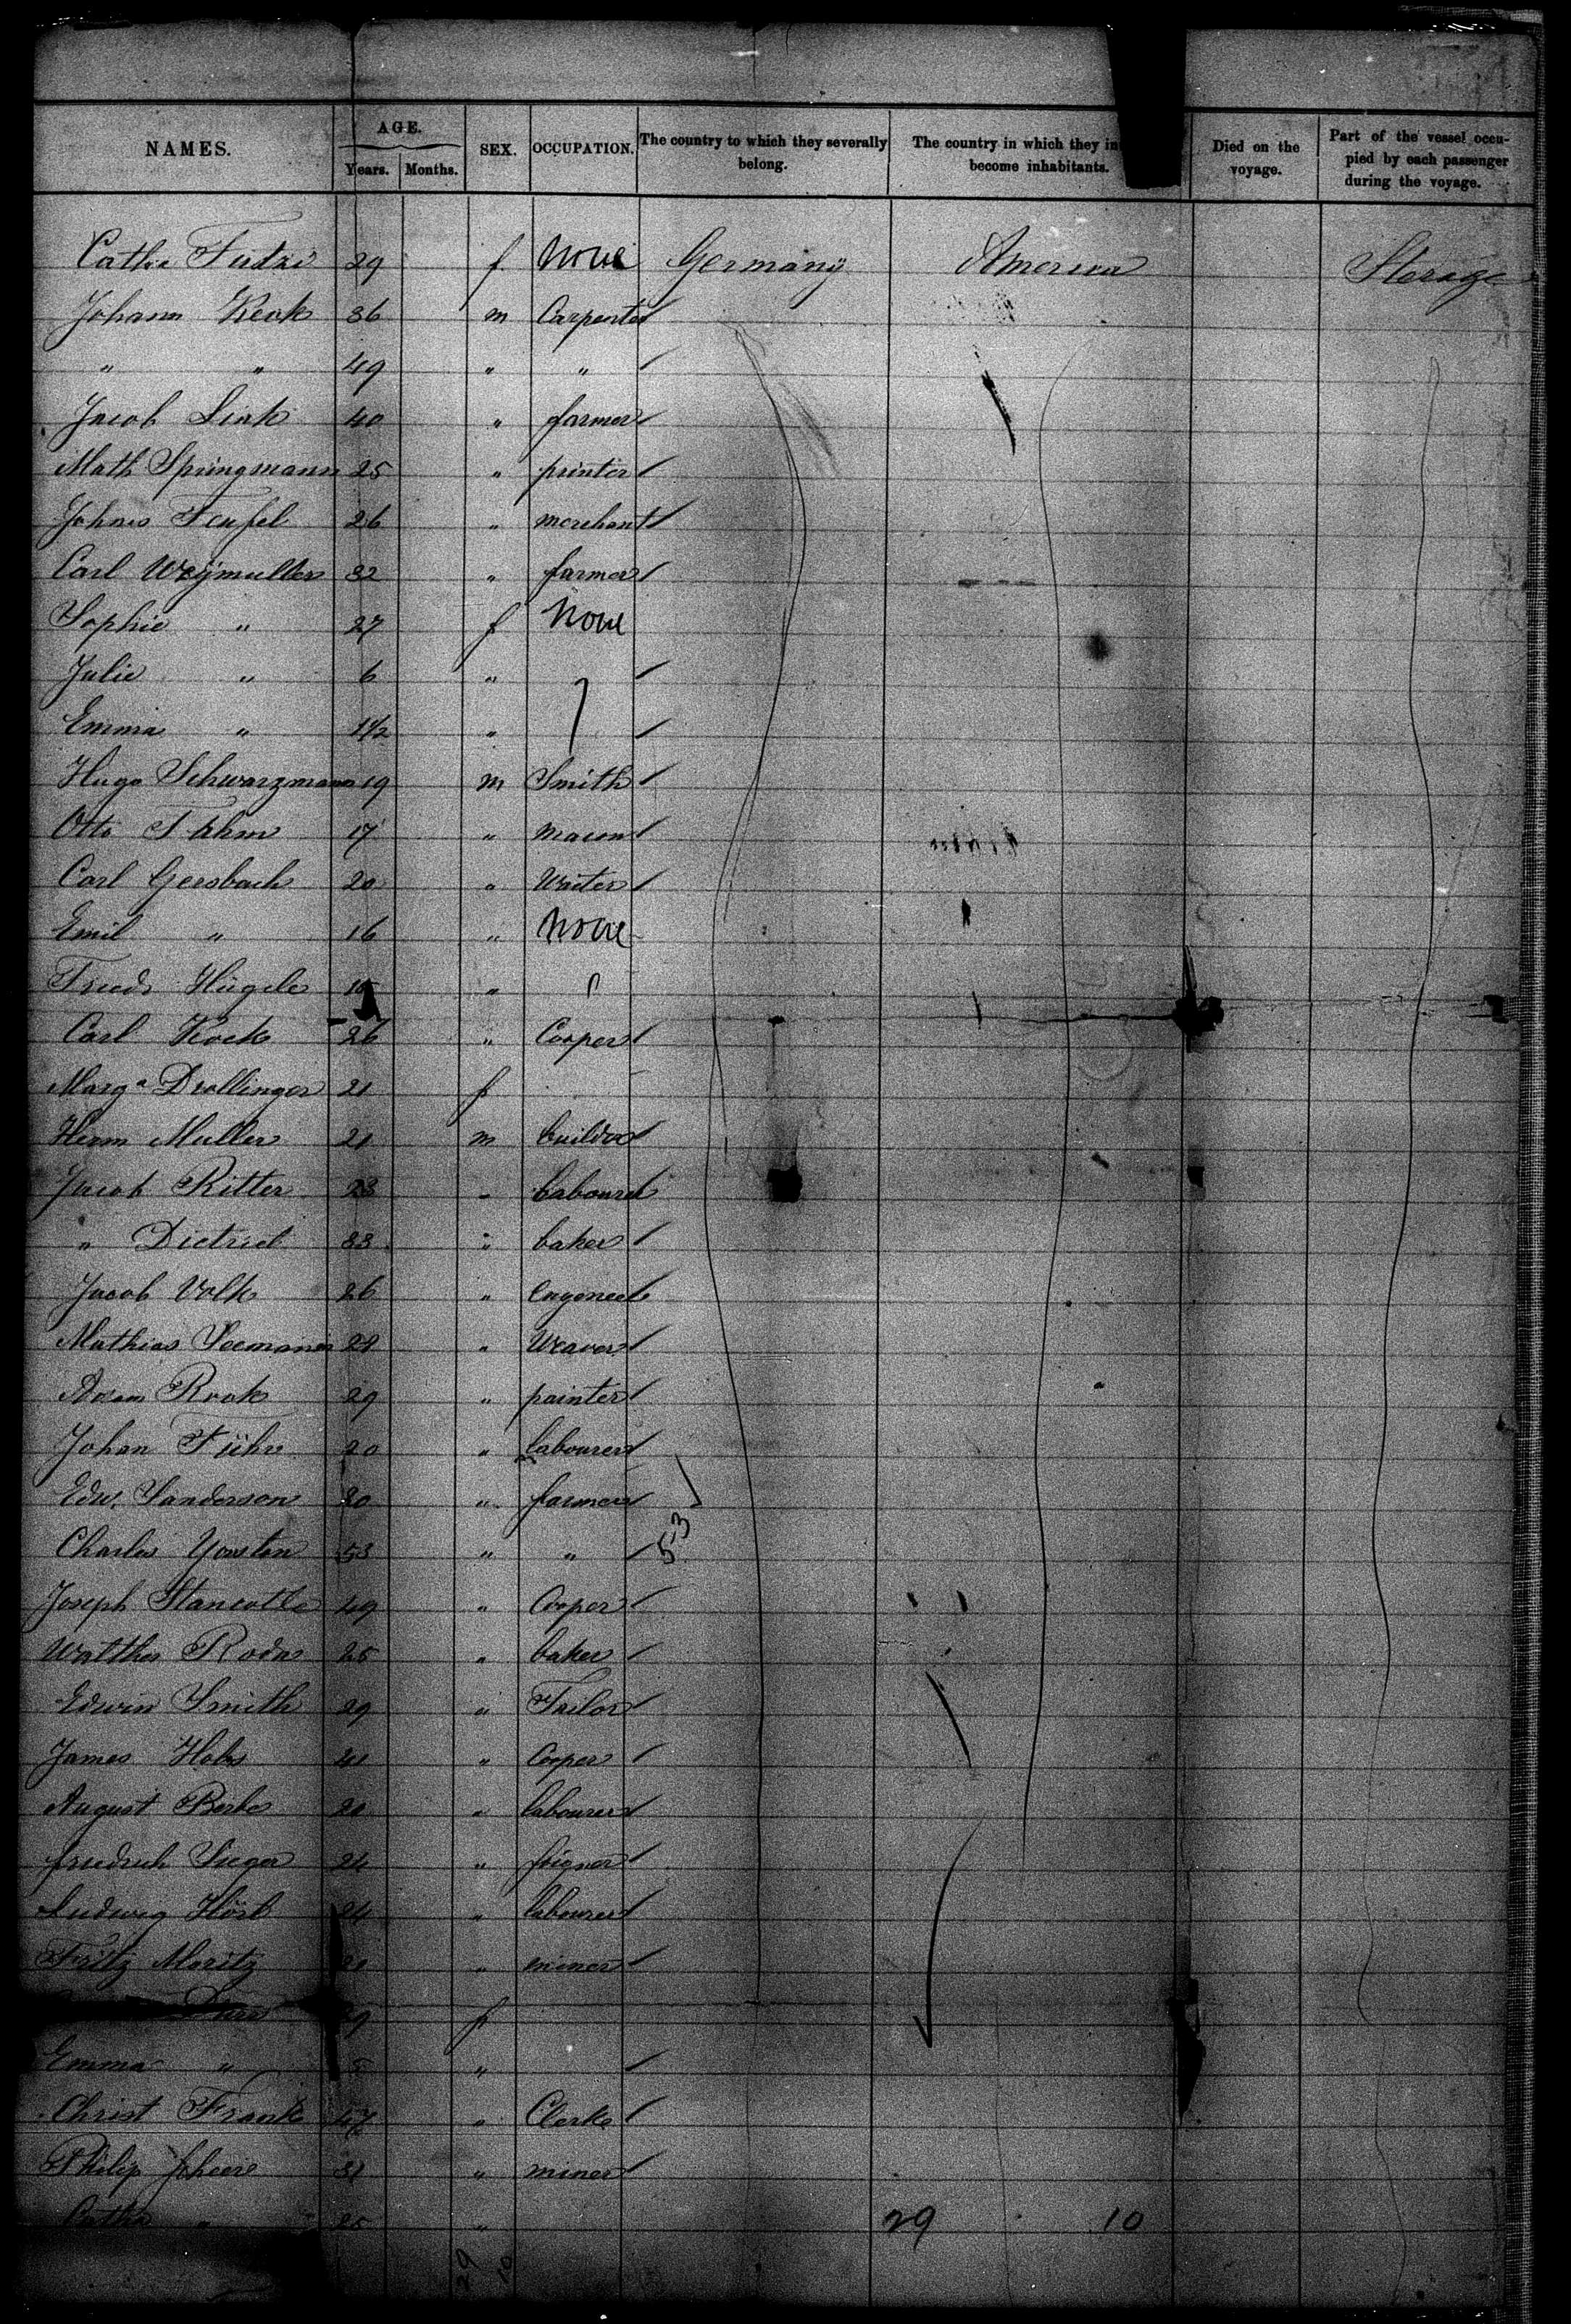 NAMES. AGE. Years. Months. SEX. OCCUPATION. The country to which they severally belong. The country in which they in become inhabitants. Died on the voyage. Part of the vessel occupied by each passenger during the voyage.
29 f None Germany America Sterage
Johann Keck 36 m Carpenter
" " 49 " "
Jacob Link 40 " farmer
Math Springmann 25 " printer
Johnes Teufel 26 " merchant
Carl Weymuller 32 " farmer
Sophie " 27 f None
Julie " 6 "
Emma " 1 1/2 "
Hugo Schwarzmann 19 m Smith
Otto 17 " mason
Carl Gersbach 20 " Waiter
Emil " 16 " None
Friedr Hügele "
Carl Kock 26 " Cooper
Marga Drollinger 21 f
Herm Muller 21 m builder
Jacob Ritter 23 " labourer
" Dietrich 33 " baker
Jacob Volk 26 " engeneer
Mathias Seemann 24 " Weaver
Adam Rook 29 " painter
Johan Führ 20 " labourer
Edw. Sanderson 30 " farmer
Charles Yonston 53 " " 53
Joseph 49 " Cooper
25 " baker
Edwin Smith 29 " Tailor
James Hobs 41 " Cooper
August 20 " labourer
friedrich Sieger 24 "
Ludwig 24 " labourer
Fritz Moritz " miner
29 f
Emma " 5 "
Christ Frank 47 " Clerke
Philip 31 " miner
Catha " 25 " 29 10
29 10